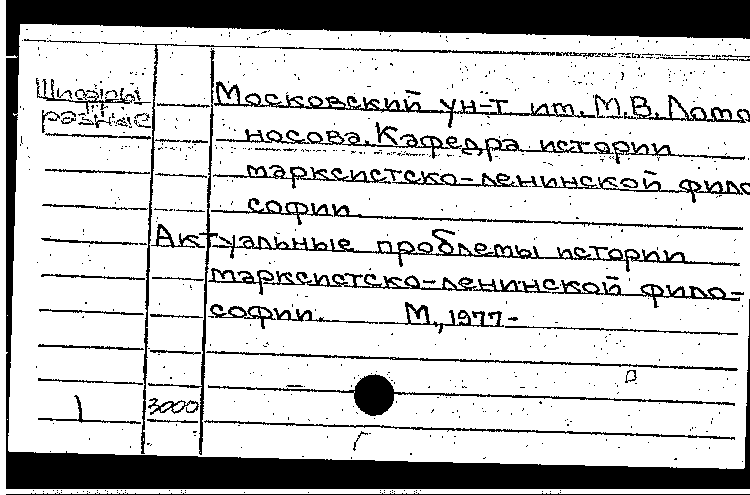 Шифры
разные
Московский ун-т им. М.В. Ломо
носова. Кафедра истории
марксистско-ленинской фило
софии.
Актуальные проблемы истории
марксистско-ленинской фило-
софии. М., 1977-
3000